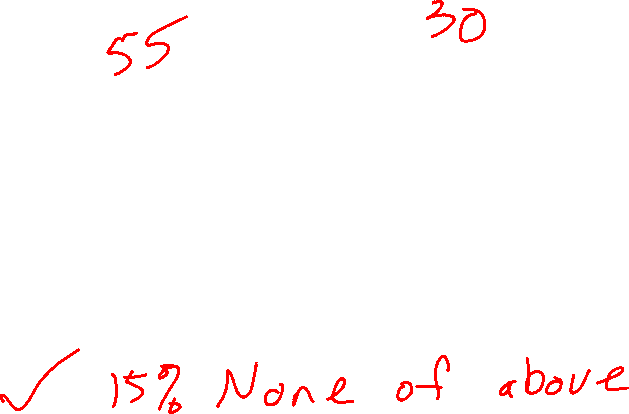 55 30
✓ 15% None of above